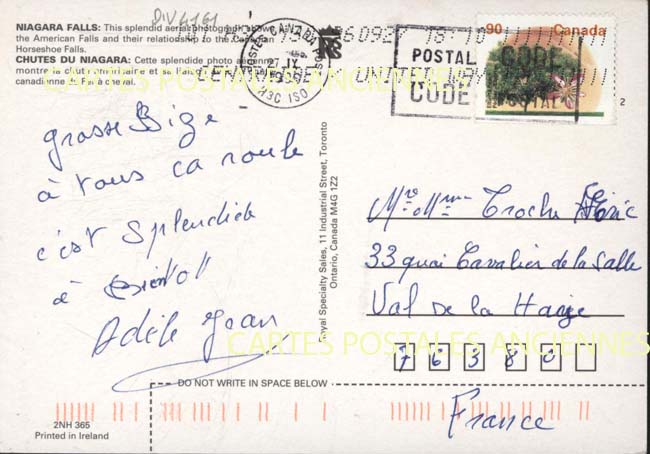 DIV6161
NIAGARA FALLS: This splendid aerial photograph shows
the American Falls and their relationship to the Canadian
Horseshoe Falls.
CHUTES DU NIAGARA: Cette splendide photo aérienne
montre la chut américaine et sa
canadienne du Fer à cheval.
POSTES CANADA POST
27 IX
H3C ISO
960927 18:10
POSTAL CODE
CODE POSTAL
90 Canada
2
CARTES POSTALES ANCIENNES
grosse Bize
à vous ca roule
c'est splendide
à Bientôt
Adèle Jean
Royal Specialty Sales, 11 Industrial Street, Toronto
Ontario, Canada M4G 1Z2
Mr Mme Croche
33 quai Cavalier de la Salle
Val de la Haye
76380
France
CARTES POSTALES ANCIENNES
DO NOT WRITE IN SPACE BELOW
2NH 365
Printed in Ireland